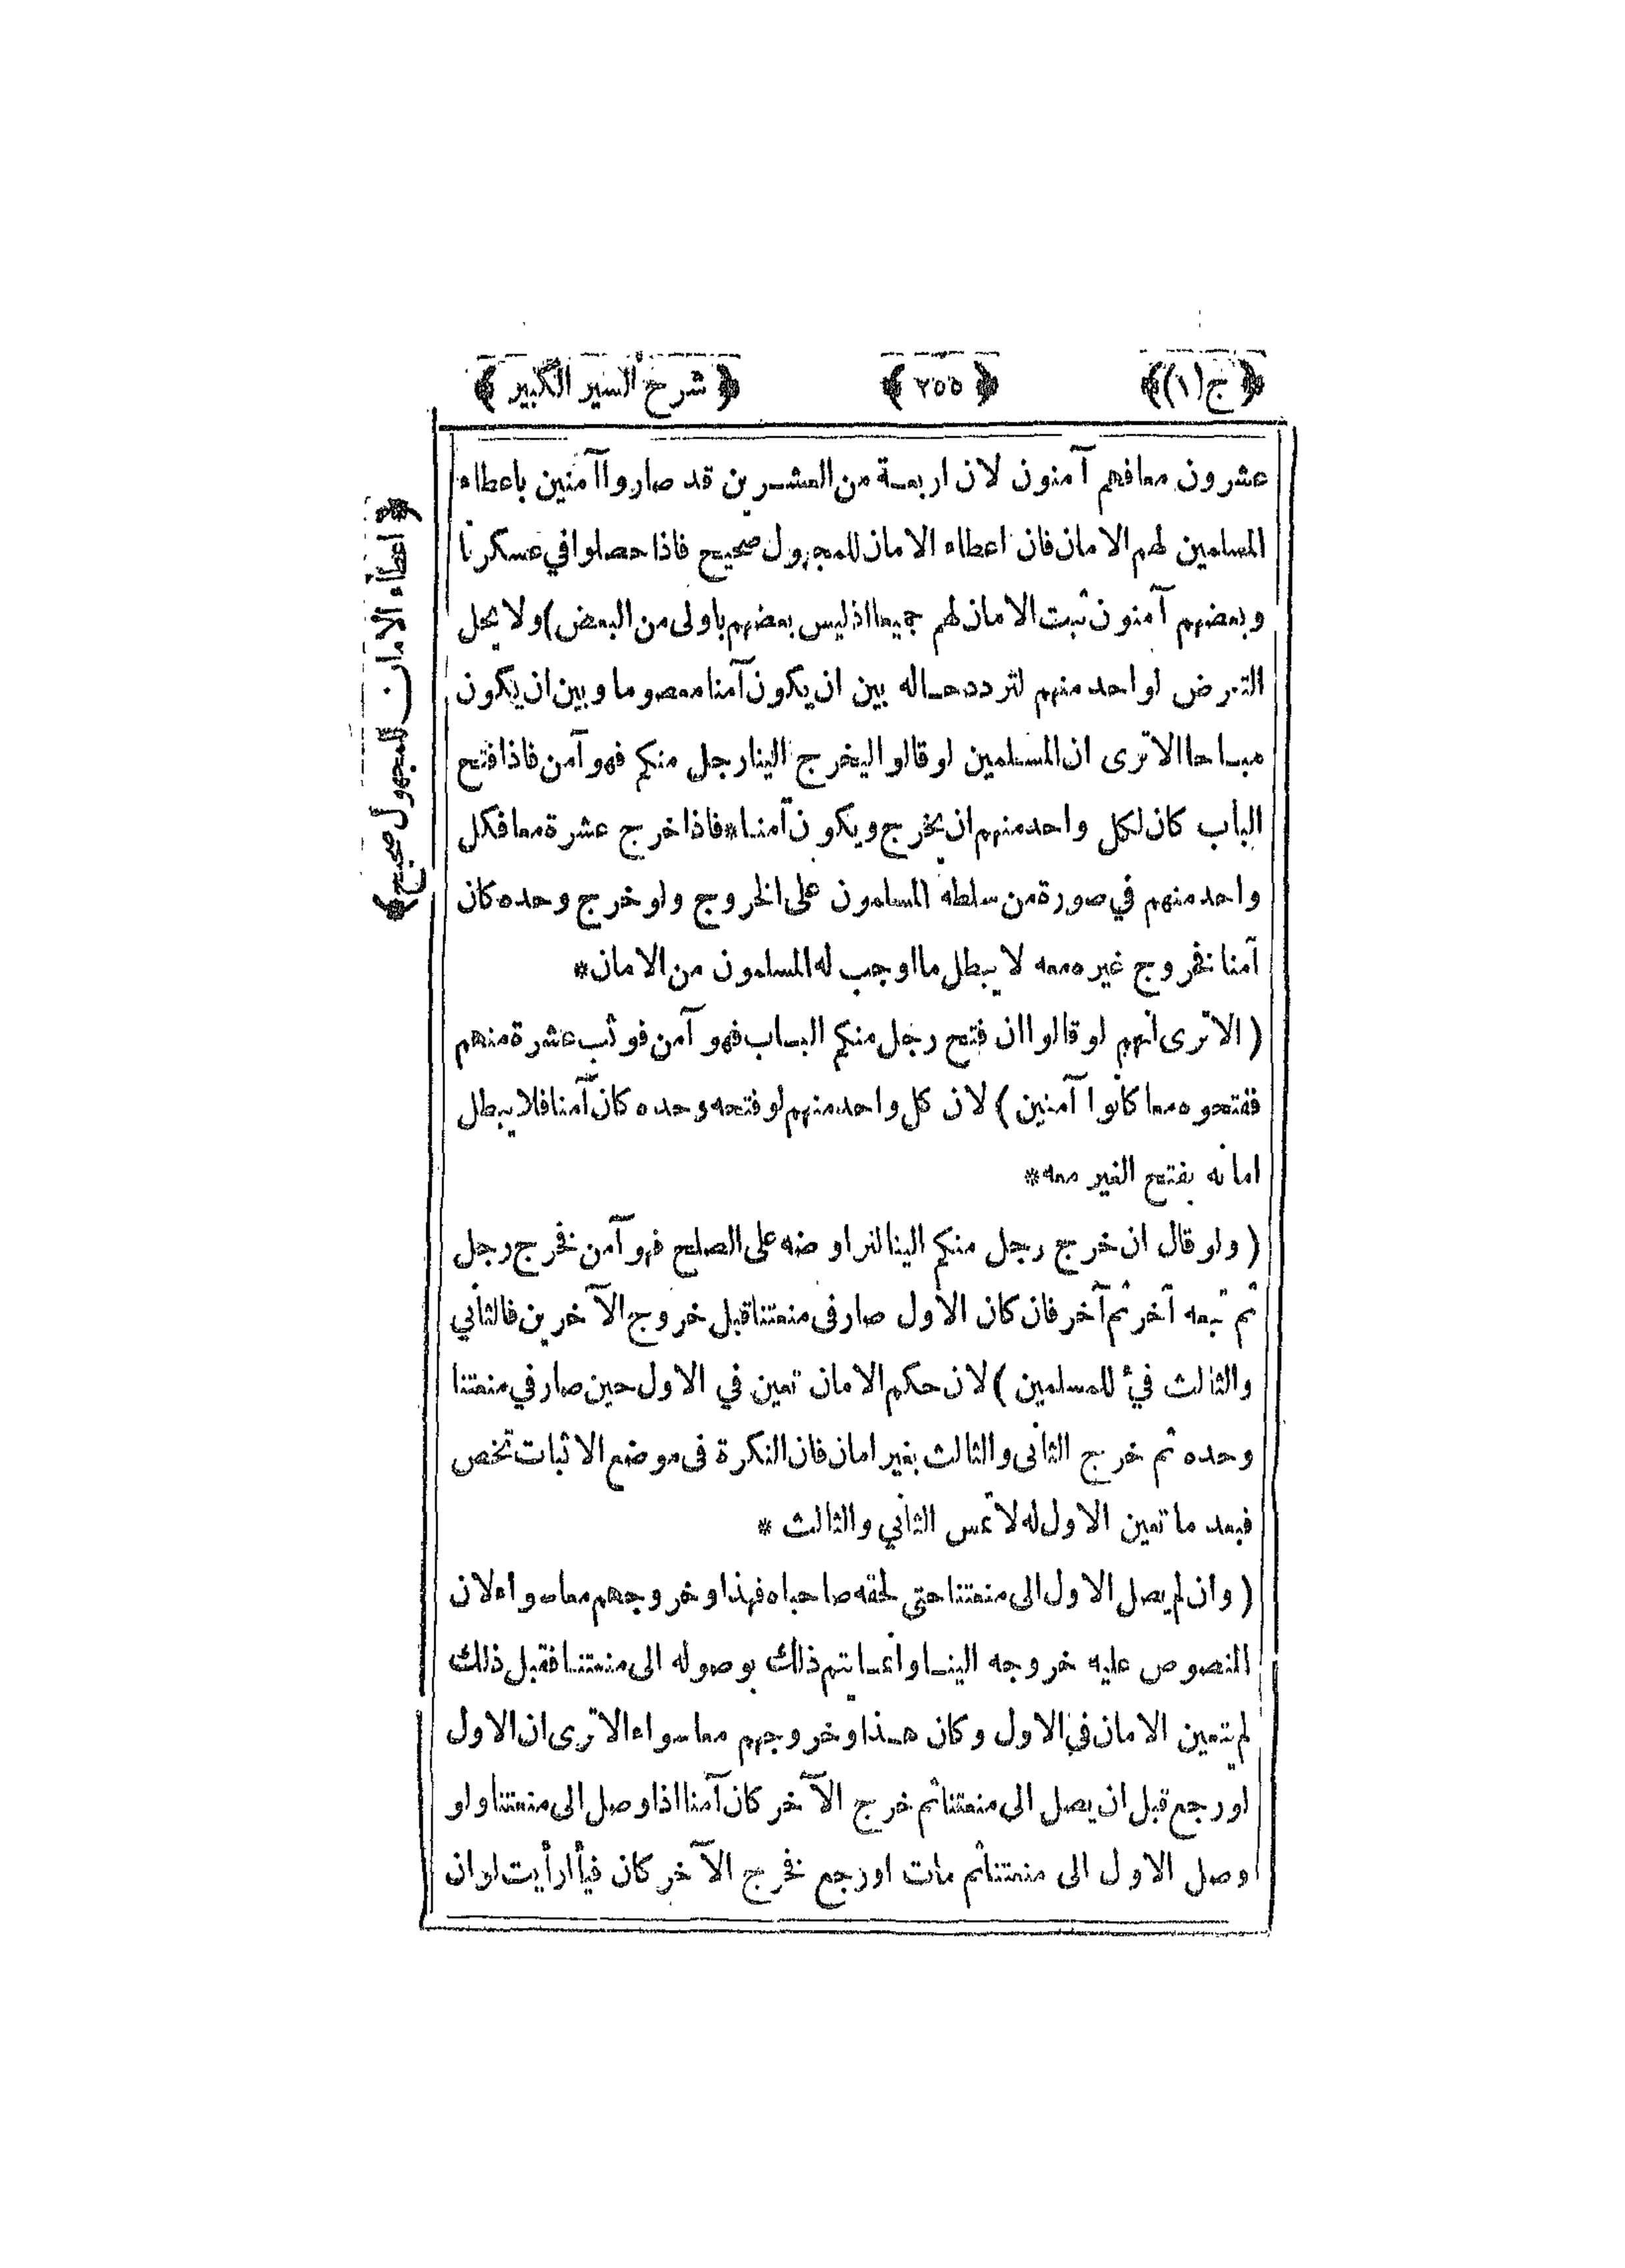 ﴿ ج (١) ﴾ ﴿ ٢٥٥ ﴾ ﴿ شرح السير الكبير ﴾
عشرون معافهم آمنون لان اربعة من العشرين قد صاروا آمنين باعطاء
المسلمين لهم الامان فان اعطاء الامان للمجهول صحيح فاذا حصلوا في عسكرنا
وبعضهم آمنون ثبت الامان لهم جميعا اذ ليس بعضهم باولى من البعض) ولا يحل
التعرض لواحد منهم لتردد حاله بين ان يكون آمنا معصوما وبين ان يكون
مباحا الا ترى ان المسلمين لو قالوا ليخرج الينا رجل منكم فهو آمن فاذا فتح
الباب كان لكل واحد منهم ان يخرج ويكون آمنا * فاذا خرج عشرة معا فكل
واحد منهم في صورة من سلطه المسلمون على الخروج ولو خرج وحده كان
آمنا فخروج غيره معه لا يبطل ما اوجب له المسلمون من الامان *
( الا ترى انهم لو قالوا ان فتح رجل منكم الباب فهو آمن فوثب عشرة منهم
ففتحوه معا كانوا آمنين ) لان كل واحد منهم لو فتحه وحده كان آمنا فلا يبطل
امانه بفتح الغير معه *
( ولو قال ان خرج رجل منكم الينا لنراوضه على الصلح فهو آمن فخرج رجل
ثم تبعه آخر ثم آخر فان كان الاول صار فى منعتنا قبل خروج الآخرين فالثاني
والثالث فيء للمسلمين ) لان حكم الامان تعين في الاول حين صار في منعتنا
وحده ثم خرج الثانى والثالث بغير امان فان النكرة فى موضع الاثبات تخص
فبعد ما تعين الاول له لا تمس الثاني والثالث *
( وان لم يصل الاول الى منعتنا حتى لحقه صاحباه فهذا وخروجهم معا سواء لان
النصوص عليه خروجه الينا وانما يتم ذلك بوصوله الى منعتنا فقبل ذلك
لم يتعين الامان في الاول وكان هذا وخروجهم معا سواء الا ترى ان الاول
لو رجع قبل ان يصل الى منعتنا ثم خرج الآخر كان آمنا اذا وصل الى منعتنا ولو
وصل الاول الى منعتنا ثم مات او رجع فخرج الآخر كان فيأ ارأيت لو ان
﴿ اعطاء الامان للمجهول صحيح ﴾